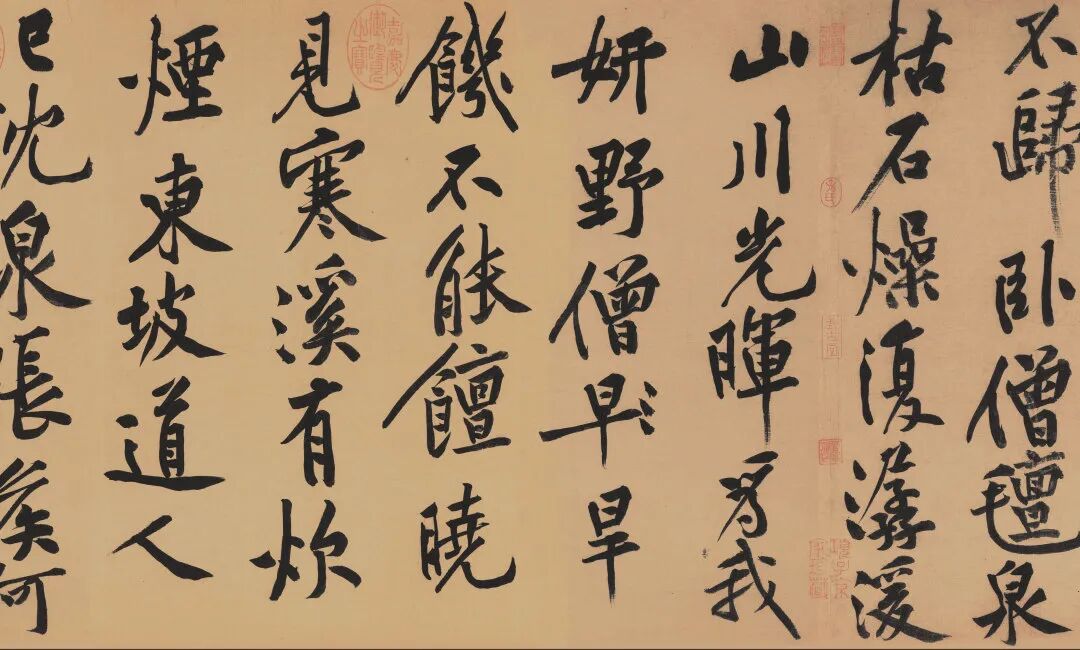 不歸卧僧氊泉
枯石燥復潺湲
山川光暉爲我
妍野僧早旱
饑不能饘曉
見寒溪有炊
煙東坡道人
已沈泉張侯何
嘉慶御覽之寶